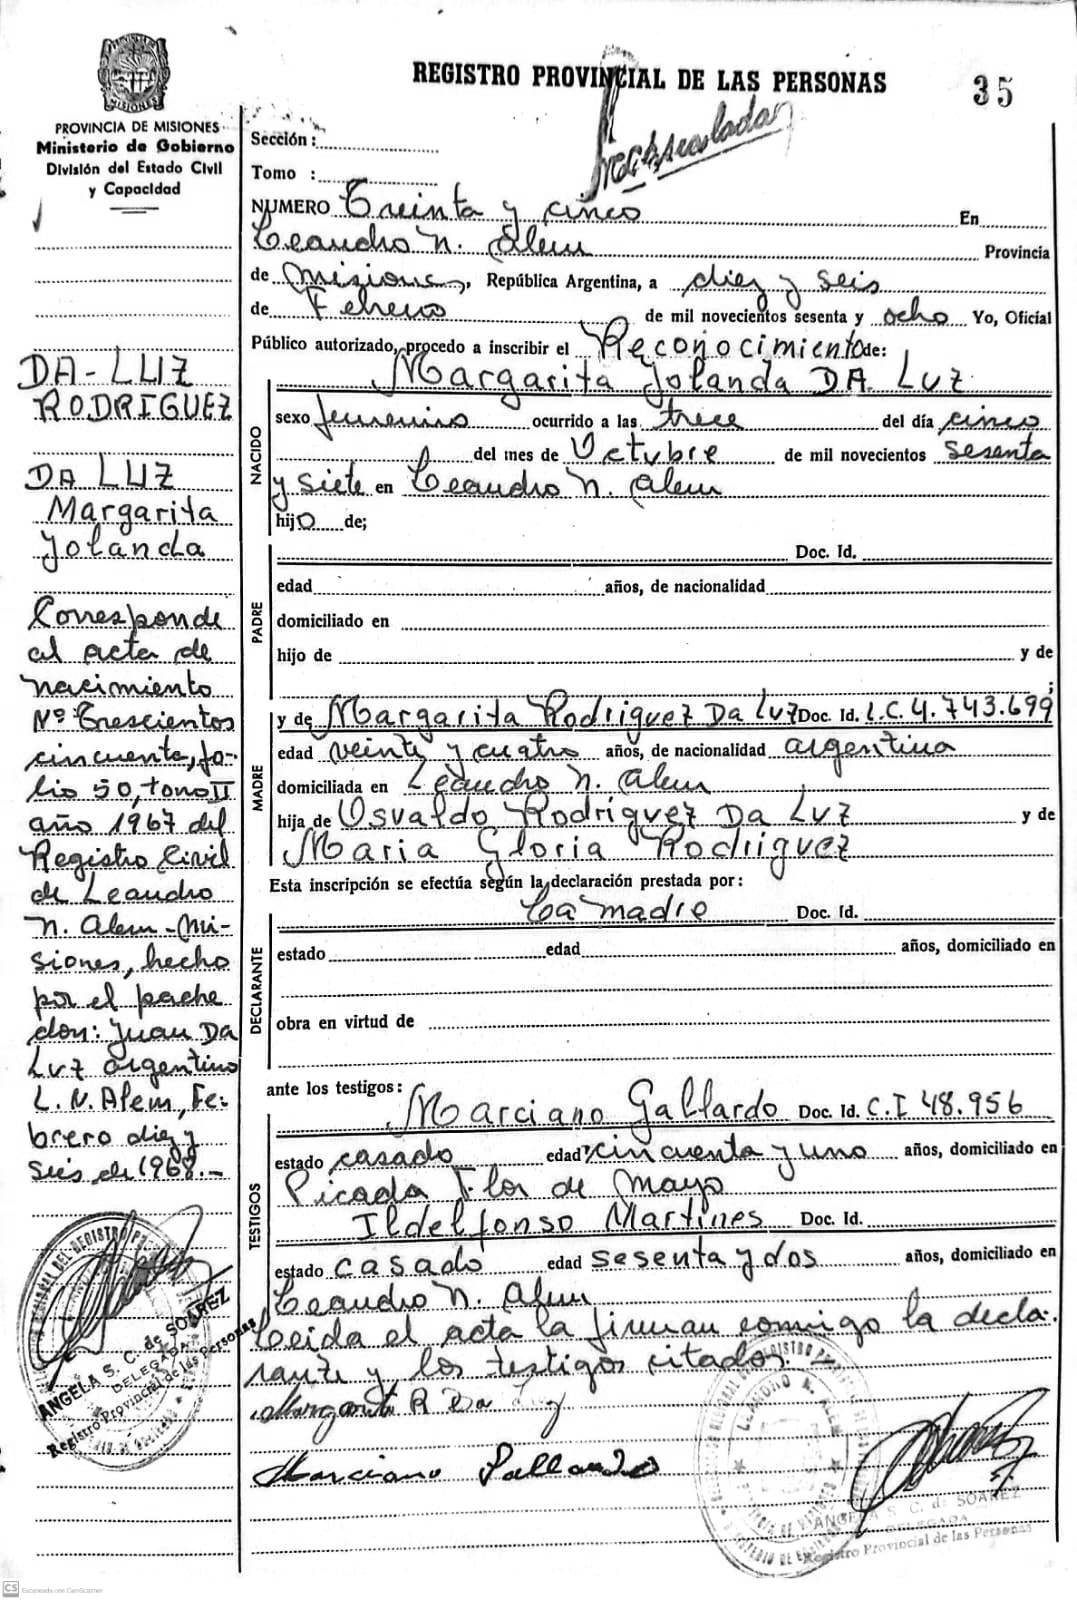 REGISTRO PROVINCIAL DE LAS PERSONAS
35
PROVINCIA DE MISIONES
Ministerio de Gobierno
División del Estado Civil
y Capacidad
DA-LUZ
RODRIGUEZ
DA LUZ
Margarita
Jolanda
Corresponde
al acta de
nacimiento
Nº Trescientos
cincuenta, fo-
lio 50, tomo II
año 1967 del
Registro Civil
de Leandro
N. Alem-Mi-
siones, hecho
por el padre
don: Juan Da
Luz argentino
L. N. Alem, Fe-
brero diez y
seis de 1968.-
ANGELA S. C. de SOAREZ
DELEGADA
Registro Provincial de las Personas
Sección:
Tomo :
NUMERO Treinta y cinco En
Leandro N. Alem Provincia
de Misiones, República Argentina, a diez y seis
de Febrero de mil novecientos sesenta y ocho Yo, Oficial
Público autorizado, procedo a inscribir el Reconocimiento de:
NACIDO
Margarita Jolanda DA LUZ
sexo femenino ocurrido a las trece del día cinco
del mes de Octubre de mil novecientos sesenta
y siete en Leandro N. Alem
hijo de;
PADRE
Doc. Id.
edad años, de nacionalidad
domiciliado en
hijo de y de
;
MADRE
y de Margarita Rodriguez Da Luz Doc. Id. L.C. 4.743.699
edad veinte y cuatro años, de nacionalidad argentina
domiciliada en Leandro N. Alem
hija de Osvaldo Rodriguez Da Luz y de
Maria Gloria Rodriguez
Esta inscripción se efectúa según la declaración prestada por:
DECLARANTE
La madre Doc. Id.
estado edad años, domiciliado en
obra en virtud de
ante los testigos:
TESTIGOS
Marciano Gallardo Doc. Id. C.I 48.956
estado casado edad cincuenta y uno años, domiciliado en
Picada Flor de Mayo
Ildelfonso Martines Doc. Id.
estado casado edad sesenta y dos años, domiciliado en
Leandro N. Alem
Leida el acta la firman conmigo la decla-
rante y los testigos citados.-
Margarita R Da Luz
Marciano Gallardo
LEANDRO N. ALEM
ANGELA S. C. de SOAREZ
DELEGADA
Registro Provincial de las Personas
CS Escaneado con CamScanner